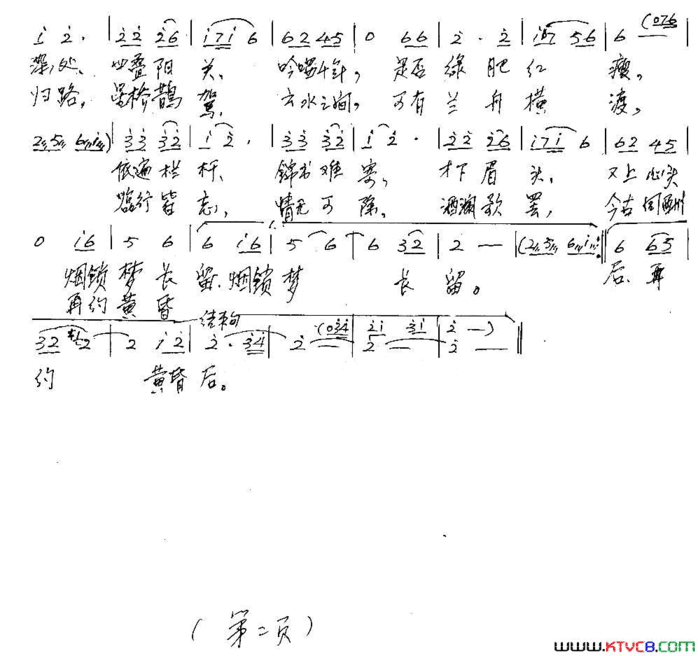 i 2 · | 2 2 2 6 | i 7 i 6 | 6 2 4 5 | 0 6 6 | 2 · 2 | i 6 7 5 · 6 | 6 (0 7 6 |
深处、叠阳关、吟 是否绿肥红瘦。
归路,桥鹊驾, 云水之间,可有兰舟横渡,
3 3 3 2 | i 2 · | 3 3 3 2 | i 2 · | 2 2 2 6 | i 7 i 6 | 6 2 4 5 |
依遍栏杆、锦书难寄,才下眉头、又上心头
临行皆忘,情无可除,酒阑歌罢,今古同酬
0 i 6 | 5 6 | 6 i 6 | 5 6 | 6 3 2 | 2 — | 6 6 5 |
烟锁梦长留、烟锁梦长留。后、再
再约黄昏
结束句
3 2 2 | 2 i 2 | 2 · 3 4 | 2 · (0 3 4 | 2 i 3 i | 2 —) ‖
2 — | 2 —
约 黄昏后。
(第二页)
www.KTVC8.com